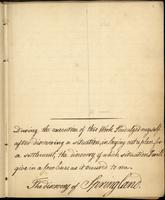 During the execution of this Work I busied myself
after discovering a situation, in laying out a plan for
a settlement, the discovery of which situation I will
give in a few lines as it occurred to me.
The discovery of Springland.